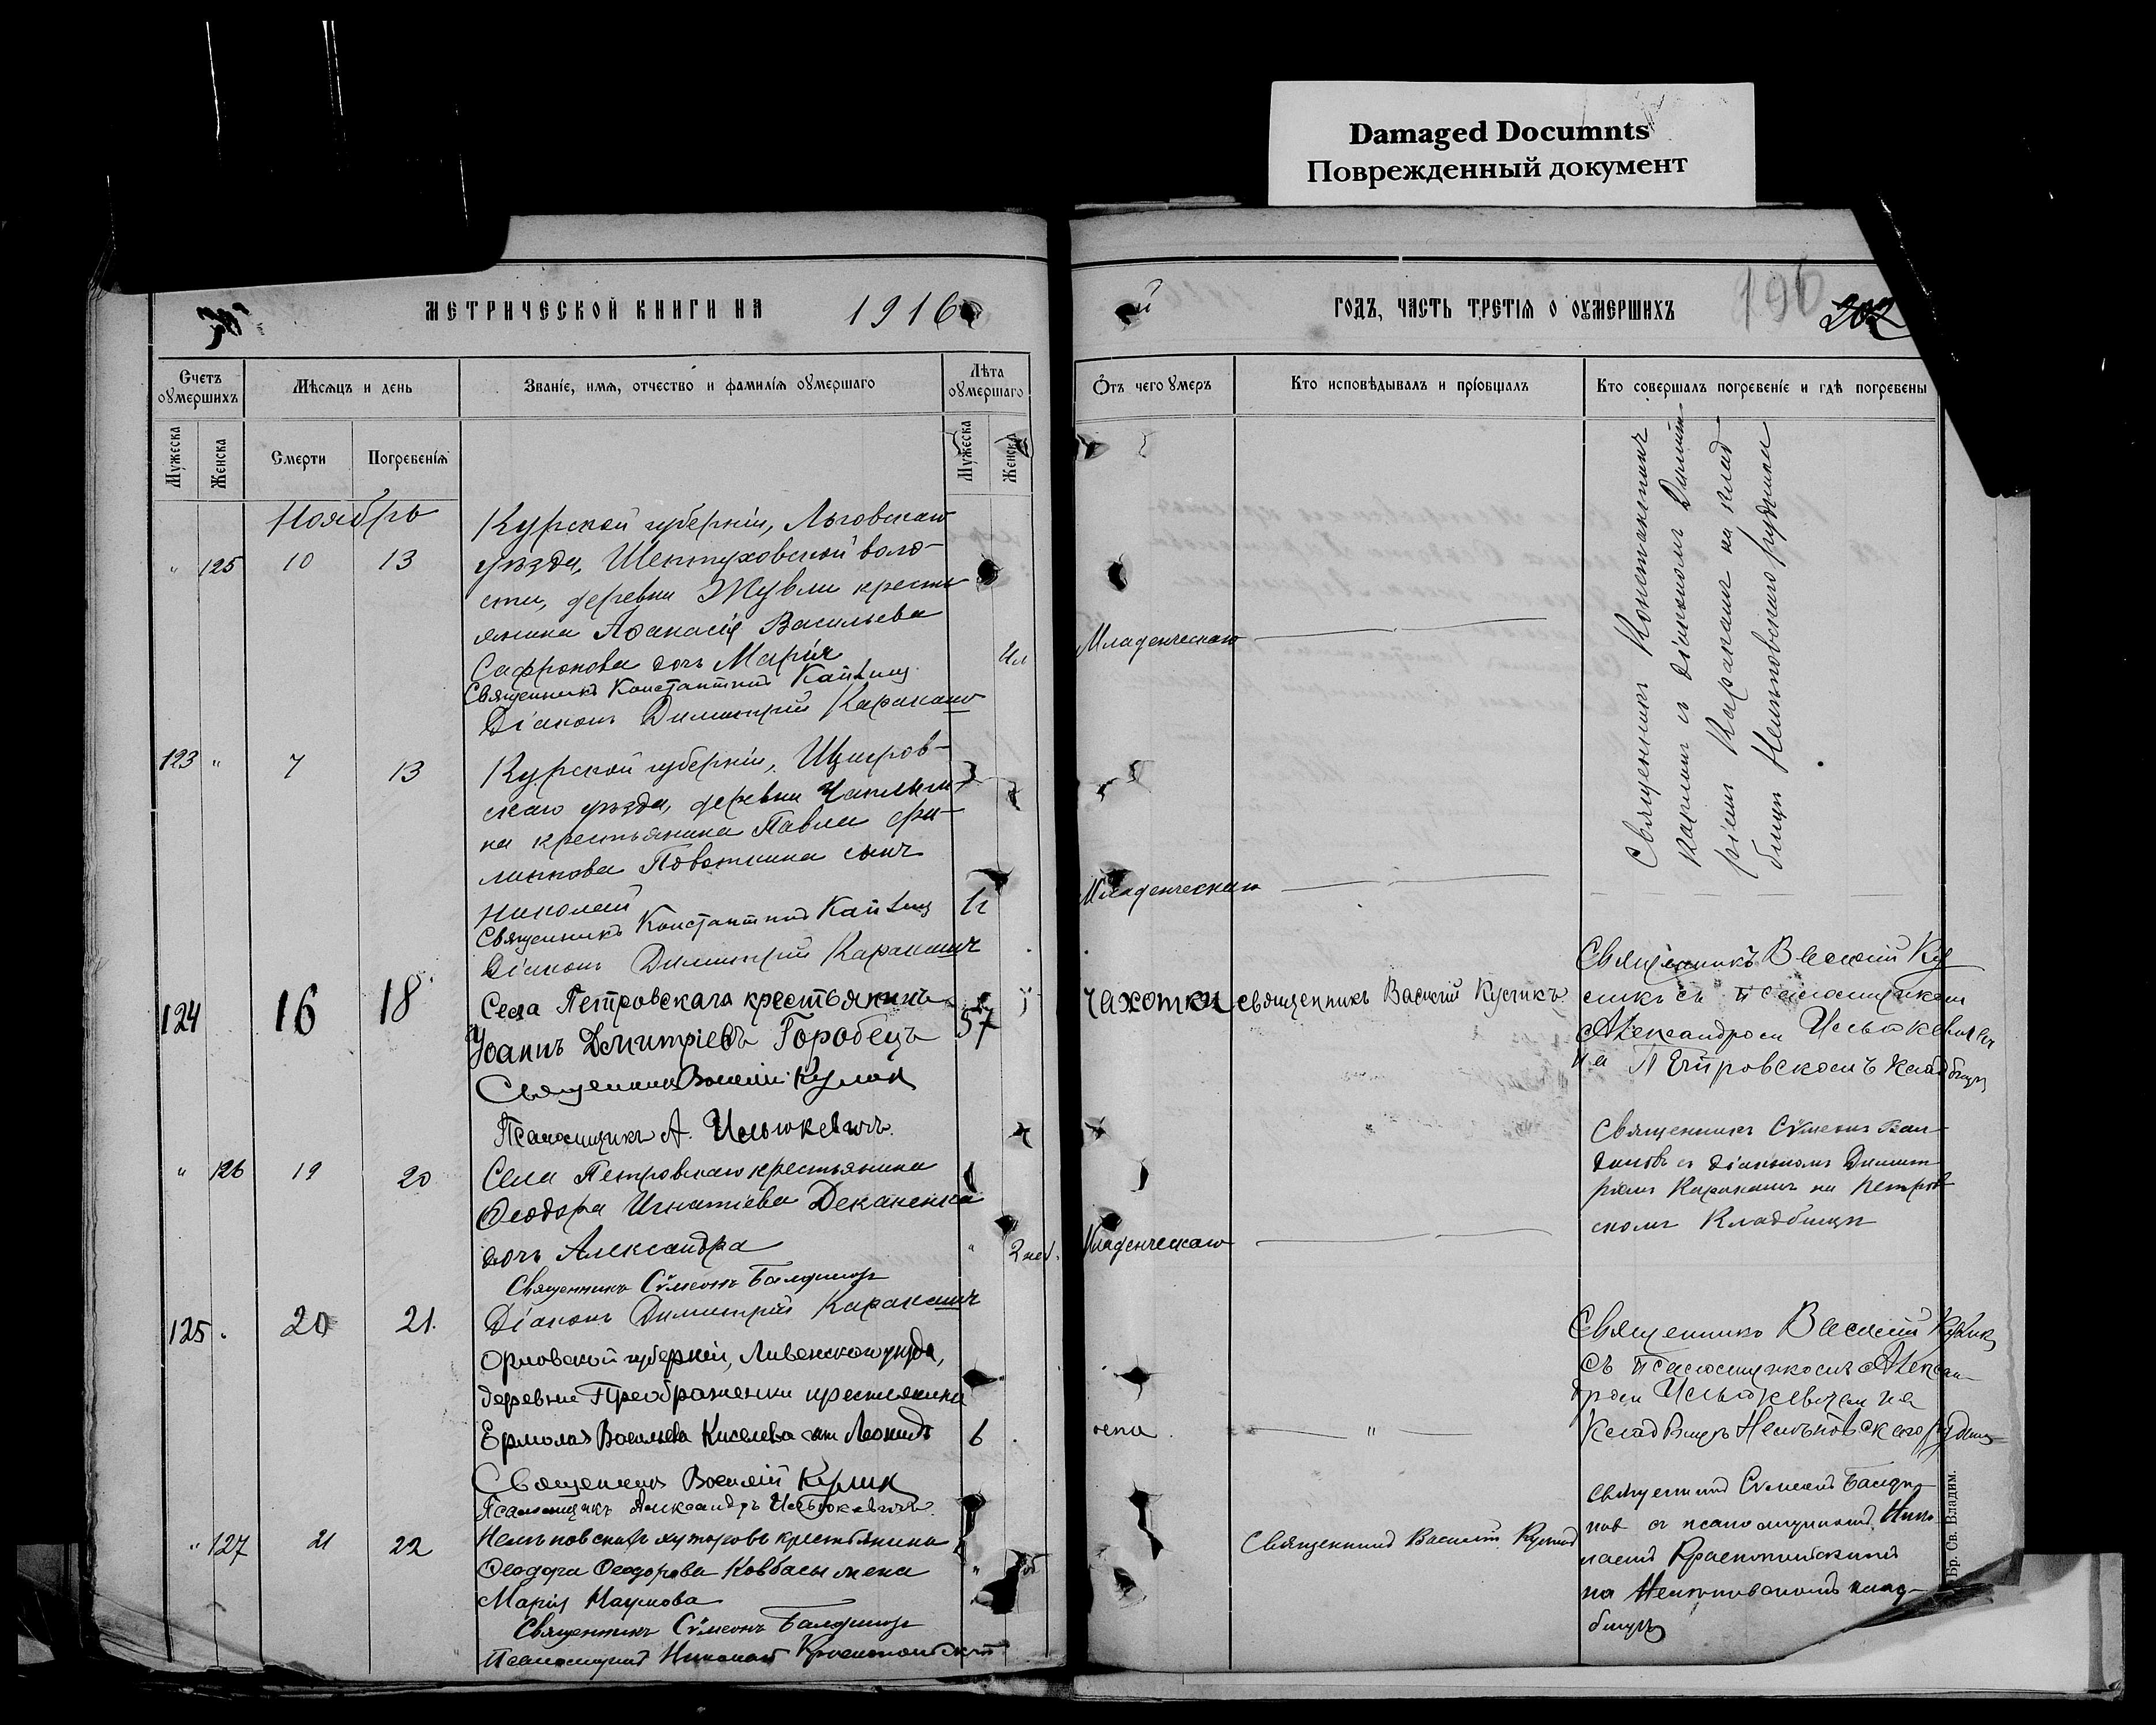 Damaged Documnts
Поврежденный документ
МЕТРИЧЕСКОЙ КНИГИ НА 1916
й ГОДЪ, ЧАСТЬ ТРЕТІЯ О ОУМЕРШИХЪ 196 202
Счетъ оумершихъ
Мѣсяцъ и день
Званіе, имя, отчество и фамилія оумершаго
Лѣта оумершаго
Мужеска
Женска
Смерти
Погребенія
Мужеска
Женска
Отъ чего оумеръ
Кто исповѣдывалъ и пріобщалъ
Кто совершалъ погребеніе и гдѣ погребены
Ноябрь
" 125 10 13
Курской губерніи, Льговскаго
уѣзда, Шептуховской воло-
сти, деревни Жувли кресть
янина Аѳанасія Васильева
Сафронова дочь Марія
Священникъ Константинъ
Діаконъ Димитрій Каракашъ
Младенческаго
Священникъ Константинъ
и діакономъ Димит
ріемъ Каракашъ на клад
бищѣ Нелѣповскаго рудника
123 " 7 13
Курской губерніи, Щигров-
скаго уѣзда, деревни
на крестьянина Павла Фи-
липпова сынъ
Николай
Священникъ Константинъ
Діаконъ Димитрій Каракашъ
Младенческаго
124 16 18
Села Петровскаго крестьянинъ
Іоаннъ Димитріевъ Горобецъ
57
Священникъ Василій Кулик
Псаломщикъ А. Ильюкевичъ.
Чахотки
священникъ Василій Куликъ
Священникъ Василій Ку
ликъ съ псаломщикомъ
Александромъ Ильюкевичемъ
на Петровскомъ кладбищѣ
" 126 19 20
Села Петровскаго крестьянина
Ѳеодора Игнатіева Деканенка
дочь Александра
" 2 нед.
Священникъ Сѵмеонъ
Діаконъ Димитрій Каракашъ
Младенческаго
Священникъ Сѵмеонъ Бал
съ діакономъ Димит
ріемъ Каракашъ на Петров
скомъ Кладбищѣ
125 " 20 21.
Орловской губерніи, Ливенскаго уѣзда,
деревни Преображенки крестьянина
Ермолая Васильева Киселева сын Леонидъ
6
Священникъ Василій Кулик
Псаломщикъ Александръ Ильюкевичъ.
"
Священникъ Василій Кулик
съ псаломщикомъ Алексан
дромъ Ильюкевичем на
Кладбищѣ Нелѣповскаго рудник
" 127 21 22
Нелѣповскихъ хуторовъ крестьянина
Ѳеодора Ѳеодорова Ковбасы жена
Марія Наумова
"
Священникъ Сѵмеонъ
Псаломщикъ Николай
Священникъ Василій Куликъ
священникъ Сѵмеонъ
съ псаломщикомъ Нико
лаемъ
на Нелѣповскомъ клад-
бищѣ
Бр. Св. Владим.